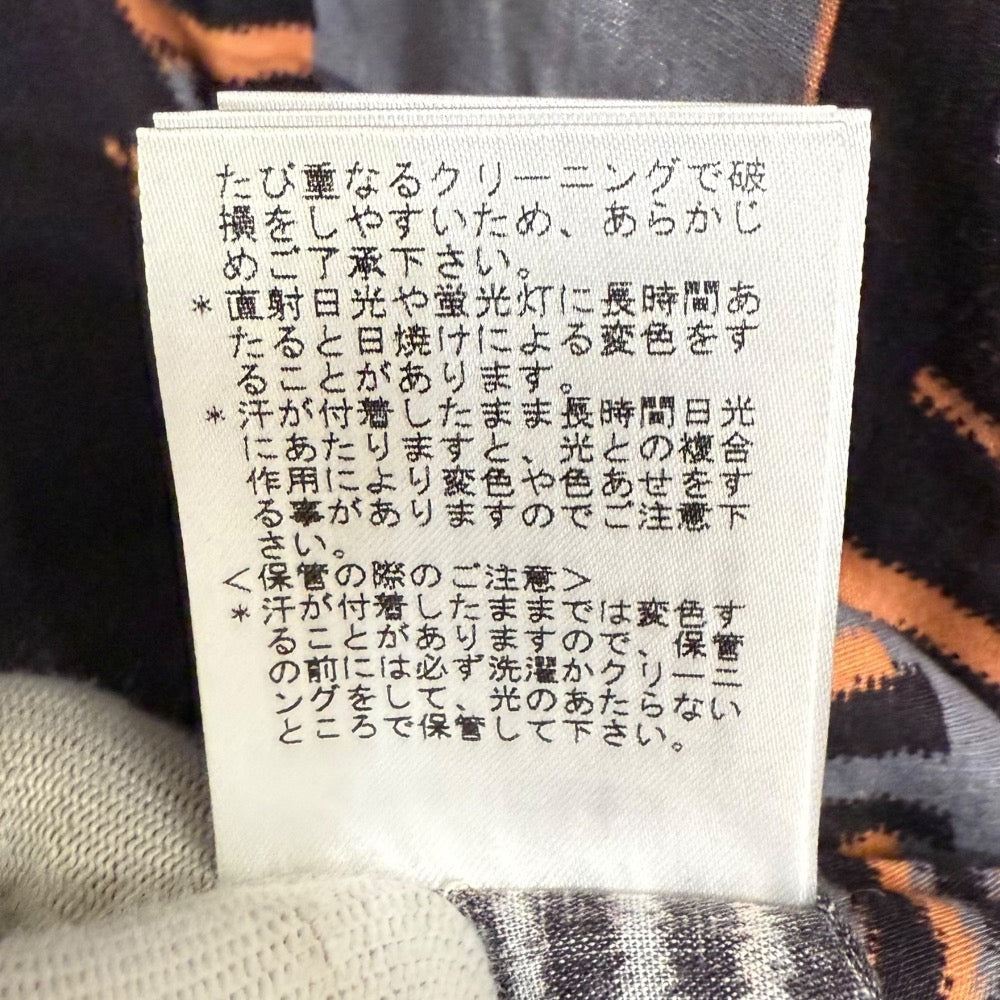 たび重なるクリーニングで破
損をしやすいため、あらかじ
めご了承下さい。
* 直射日光や蛍光灯に長時間あ
たると日焼けによる変色をす
ることがあります。
* 汗が付着したまま長時間日光
にあたりますと、光と の複合
作用により変色や色あせをす
る事がありますのでご注意下
さい。
<保管の際のご注意>
* 汗が付着したままでは変色す
ることがありますので、保管
の前には必ず洗濯かクリーニ
ングをして、光のあたらない
ところで保管して下さい。